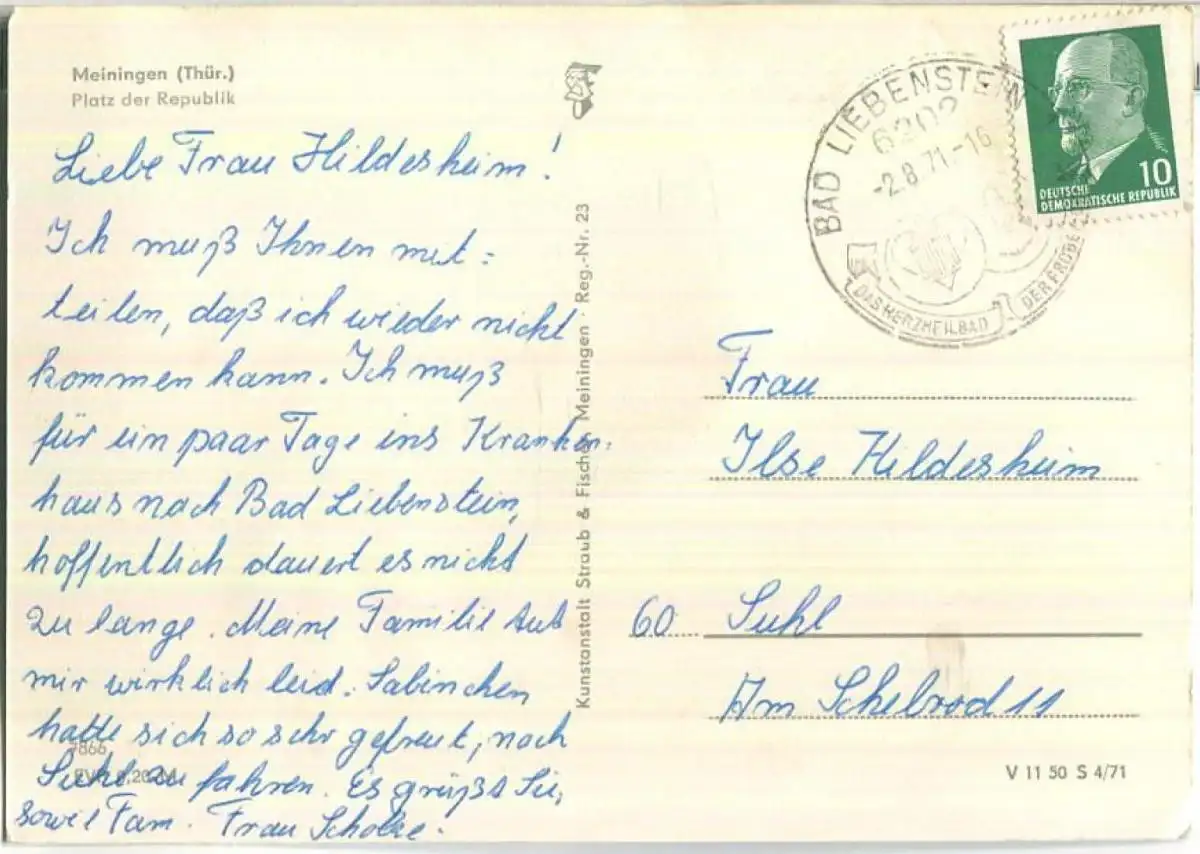 Meiningen (Thür.)
Platz der Republik
Liebe Frau Hildesheim!
Ich muß Ihnen mit=
teilen, daß ich wieder nicht
kommen kann. Ich muß
für ein paar Tage ins Kranken-
haus nach Bad Liebenstein,
hoffentlich dauert es nicht
zu lange. Meine Familie tut
mir wirklich leid. Sabinchen
hatte sich so sehr gefreut, nach
Suhl zu fahren. Es grüßt Sie,
sowie Fam. Frau Scholze.
Kunstanstalt Straub & Fischer Meiningen Reg.-Nr. 23
BAD LIEBENSTEIN
6202
-2.8.71.-16
DAS HERZHEILBAD
10
DEUTSCHE
DEMOKRATISCHE REPUBLIK
Frau
Ilse Hildesheim
60 Suhl
Am Schelrod 11
V 11 50 S 4/71